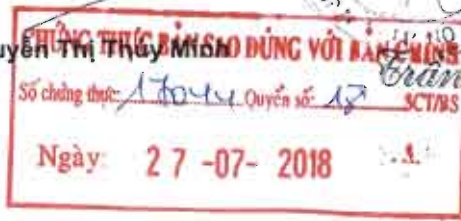 Nguyễn Thị Thúy Minh
CHỨNG THỰC BẢN SAO ĐÚNG VỚI BẢN CHÍNH
Trần
Số chứng thực: 17044 Quyển số: 17 SCT/BS
Ngày: 27 -07- 2018